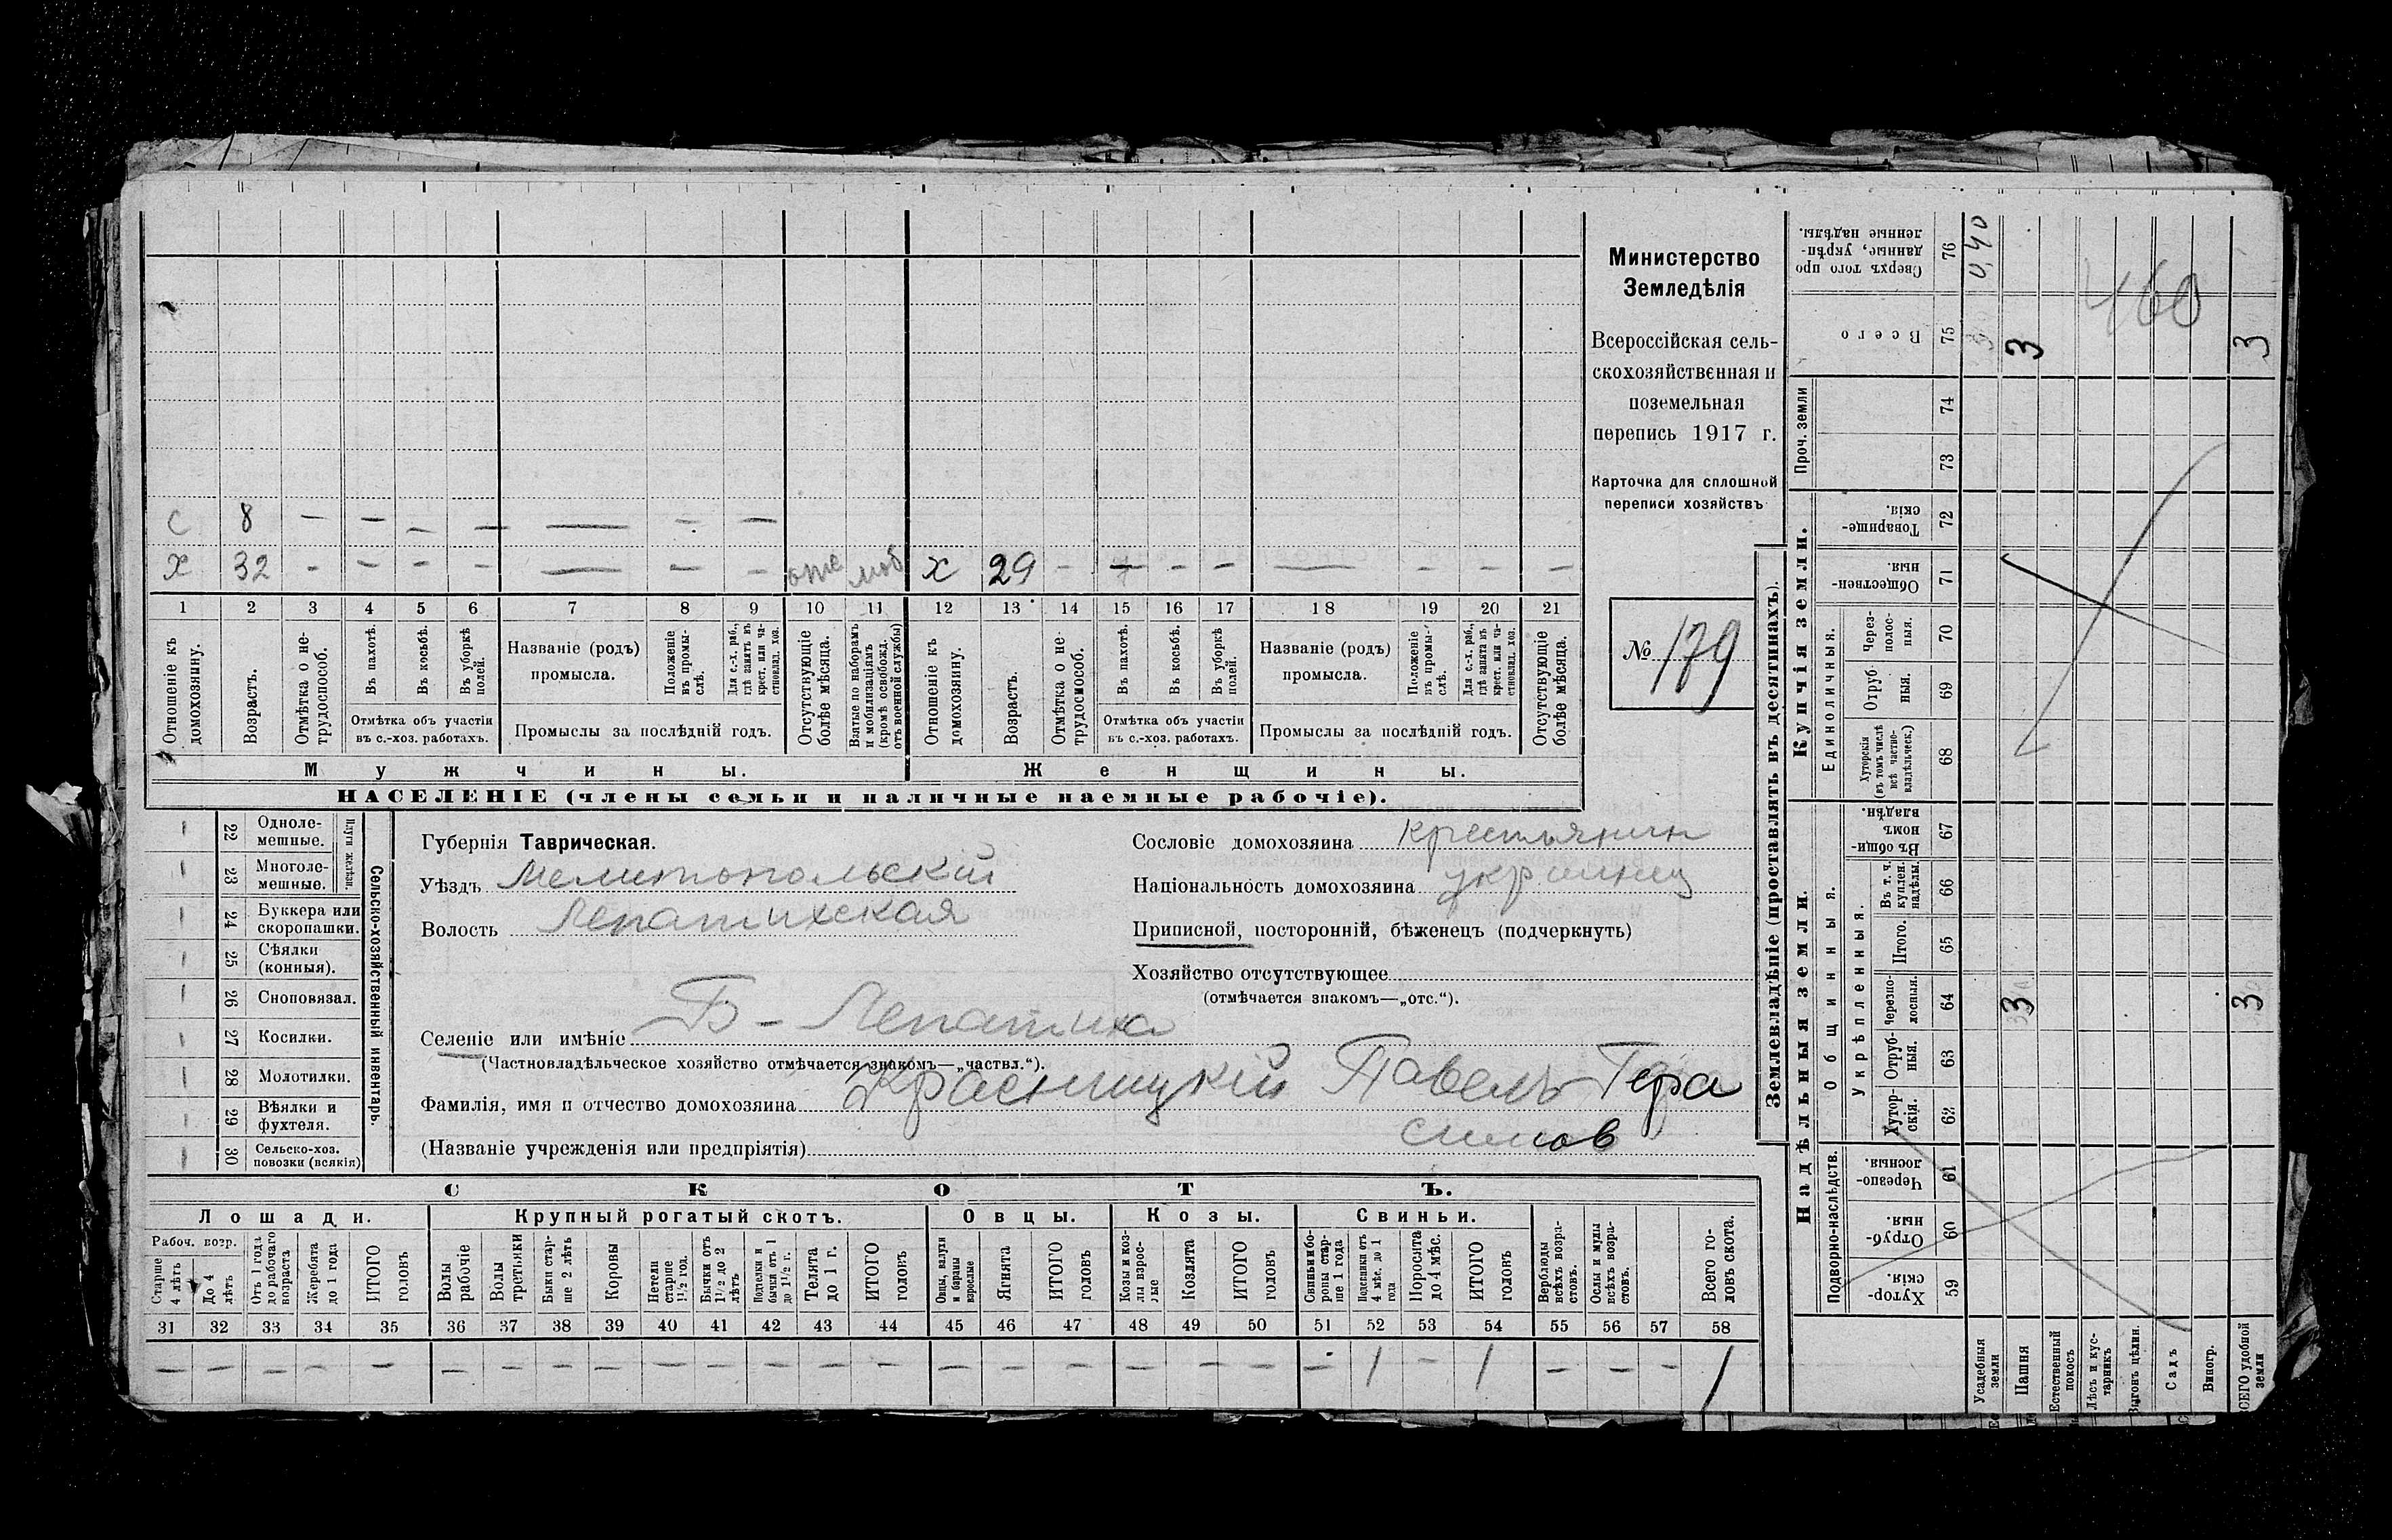 с 8 — — — — — — —
х 32 - - - - — — - отс моб х 29 - — - - — - - —
1 2 3 4 5 6 7 8 9 10 11 12 13 14 15 16 17 18 19 20 21
Отношеніе къ домохозяину.
Возрастъ.
Отмѣтка о не-трудоспособ.
Въ пахотѣ.
Въ косьбѣ.
Въ уборкѣ полей.
Отмѣтка объ участіи
въ с.-хоз. работахъ.
Названіе (родъ)
промысла.
Положеніе въ промы-слѣ.
Для с.-х. раб., гдѣ занятъ въ крест. или ча-стновлад. хоз.
Промыслы за послѣдній годъ.
Отсутствующіе болѣе мѣсяца.
Взятые по наборамъ и мобилизаціямъ (кромѣ освобожд. отъ военной службы)
Отношеніе къ домохозяину.
Возрастъ.
Отмѣтка о не трудоспособ.
Въ пахотѣ.
Въ косьбѣ.
Въ уборкѣ полей.
Отмѣтка объ участіи
въ с.-хоз. работахъ.
Названіе (родъ)
промысла.
Положеніе въ промы-слѣ.
Для с.-х. раб., гдѣ занята въ крест. или ча-стновлад. хоз.
Промыслы за послѣдній годъ.
Отсутствующіе болѣе мѣсяца.
Мужчины.
Женщины.
НАСЕЛЕНІЕ (члены семьи и наличные наемные рабочіе).
Министерство
Земледѣлія
Всероссійская сель-
скохозяйственная и
поземельная
перепись 1917 г.
Карточка для сплошной
переписи хозяйствъ
№ 179
22 Одноле-мешные.
23 Многоле-мешные.
Плуги желѣзн.
24 Буккера или скоропашки.
25 Сѣялки (конныя).
26 Сноповязал.
27 Косилки.
28 Молотилки.
29 Вѣялки и фухтеля.
30 Сельско-хоз. повозки (всякія)
Сельско-хозяйственный инвентарь.
Губернія Таврическая.
Уѣздъ Мелитопольскій
Волость Лепатихская
Селеніе или имѣніе Б - Лепатиха
(Частновладѣльческое хозяйство отмѣчается знакомъ—„частвл.“).
Фамилія, имя и отчество домохозяина Красницкій Павелъ Гера
(Названіе учрежденія или предпріятія) симов
Сословіе домохозяина крестьянин
Національность домохозяина украинец
Приписной, посторонній, бѣженецъ (подчеркнуть)
Хозяйство отсутствующее
(отмѣчается знакомъ—„отс.“).
СКОТЪ.
Лошади.
Крупный рогатый скотъ.
Овцы.
Козы.
Свиньи.
Рабоч. возр.
Старше 4 лѣтъ
До 4 лѣтъ
Отъ 1 года до рабочаго возраста
Жеребята до 1 года
ИТОГО головъ
Волы рабочіе
Волы третьяки
Быки стар-ше 2 лѣтъ
Коровы
Нетели старше 1½ год.
Бычки отъ 1½ до 2 лѣтъ
Подтелки и бычки отъ 1 до 1½ г.
Телята до 1 г.
ИТОГО головъ
Овцы, валухи и бараны взрослые
Ягнята
ИТОГО головъ
Козы и коз-лы взрос-лые
Козлята
ИТОГО головъ
Свиньи и бо-ровы стар-ше 1 года
Подсвинки отъ 4 мѣс. до 1 года
Поросята до 4 мѣс.
ИТОГО головъ
Верблюды всѣхъ возра-стовъ.
Ослы и мулы всѣхъ возра-стовъ.
Всего го-ловъ скота.
31 32 33 34 35 36 37 38 39 40 41 42 43 44 45 46 47 48 49 50 51 52 53 54 55 56 57 58
— — — — — — — — — — — — — — — — — — — — — 1 — 1 — — — 1
Землевладѣніе (проставлять въ десятинахъ).
Купчія земли.
Надѣльныя земли.
Сверхъ того про данные, укрѣп-ленные надѣлы. 76 0,40
Всего 75 3 3
460
Проч. земли
74
73
Товарище-скія. 72
Обществен-ныя. 71
Единоличныя.
Через-полос-ныя. 70
Отруб ныя. 69
Хуторскія (въ томъ числѣ всѣ частно-владѣльческ.) 68
Общинныя.
Въ общи-номъ владѣн. 67
Укрѣпленныя.
Въ т. ч. куплен. надѣлы. 66
Итого. 65
Черезпо-лосныя. 64 3 3
Отруб-ныя. 63
Хутор-скія. 62
Подворно-наслѣдств.
Черезпо-лосныя. 61
Отруб-ныя. 60
Хутор-скія. 59
Усадебныя земли
Пашня
Естественный покосъ
Лѣсъ и кус-тарникъ
Выгонъ цѣлин.
Садъ
Виногр.
ВСЕГО удобной земли